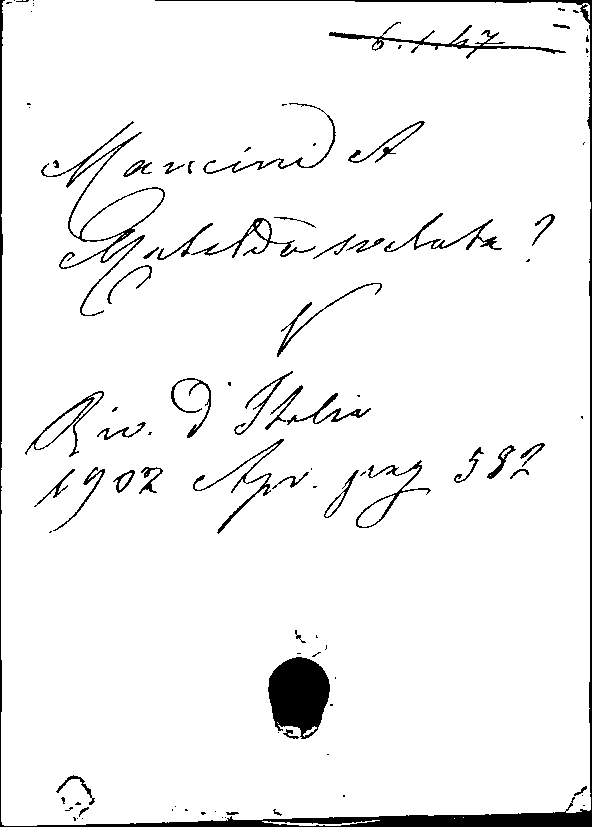 6.1.47
Mancini A
Matelda svelata ?
V
Riv. d'Italia
1902 Apr. pag 582